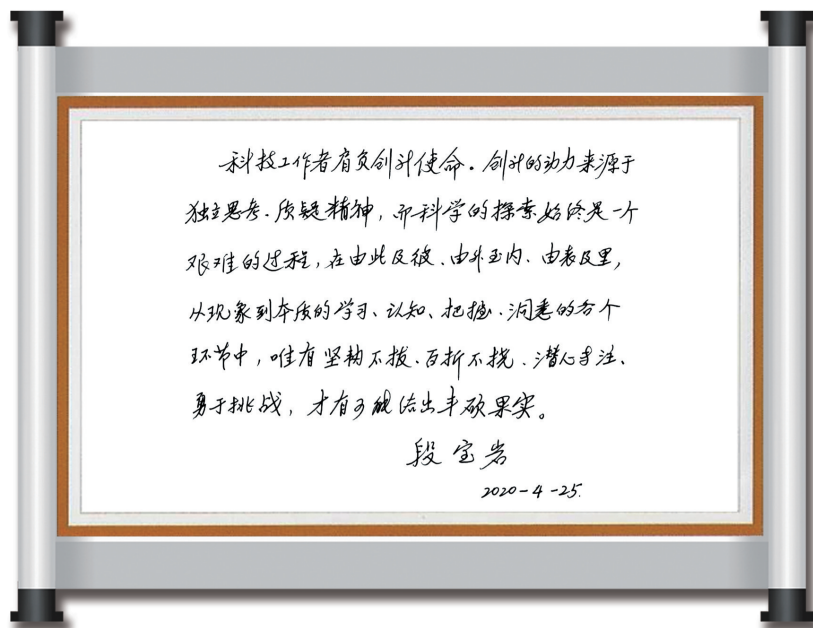 科技工作者肩负创新使命。创新的动力来源于
独立思考、质疑精神，而科学的探索始终是一个
艰难的过程，在由此及彼、由外至内、由表及里，
从现象到本质的学习、认知、把握、洞悉的各个
环节中，唯有坚韧不拔、百折不挠、潜心专注、
勇于挑战，才有可能结出丰硕果实。
段宝岩
2020-4-25.